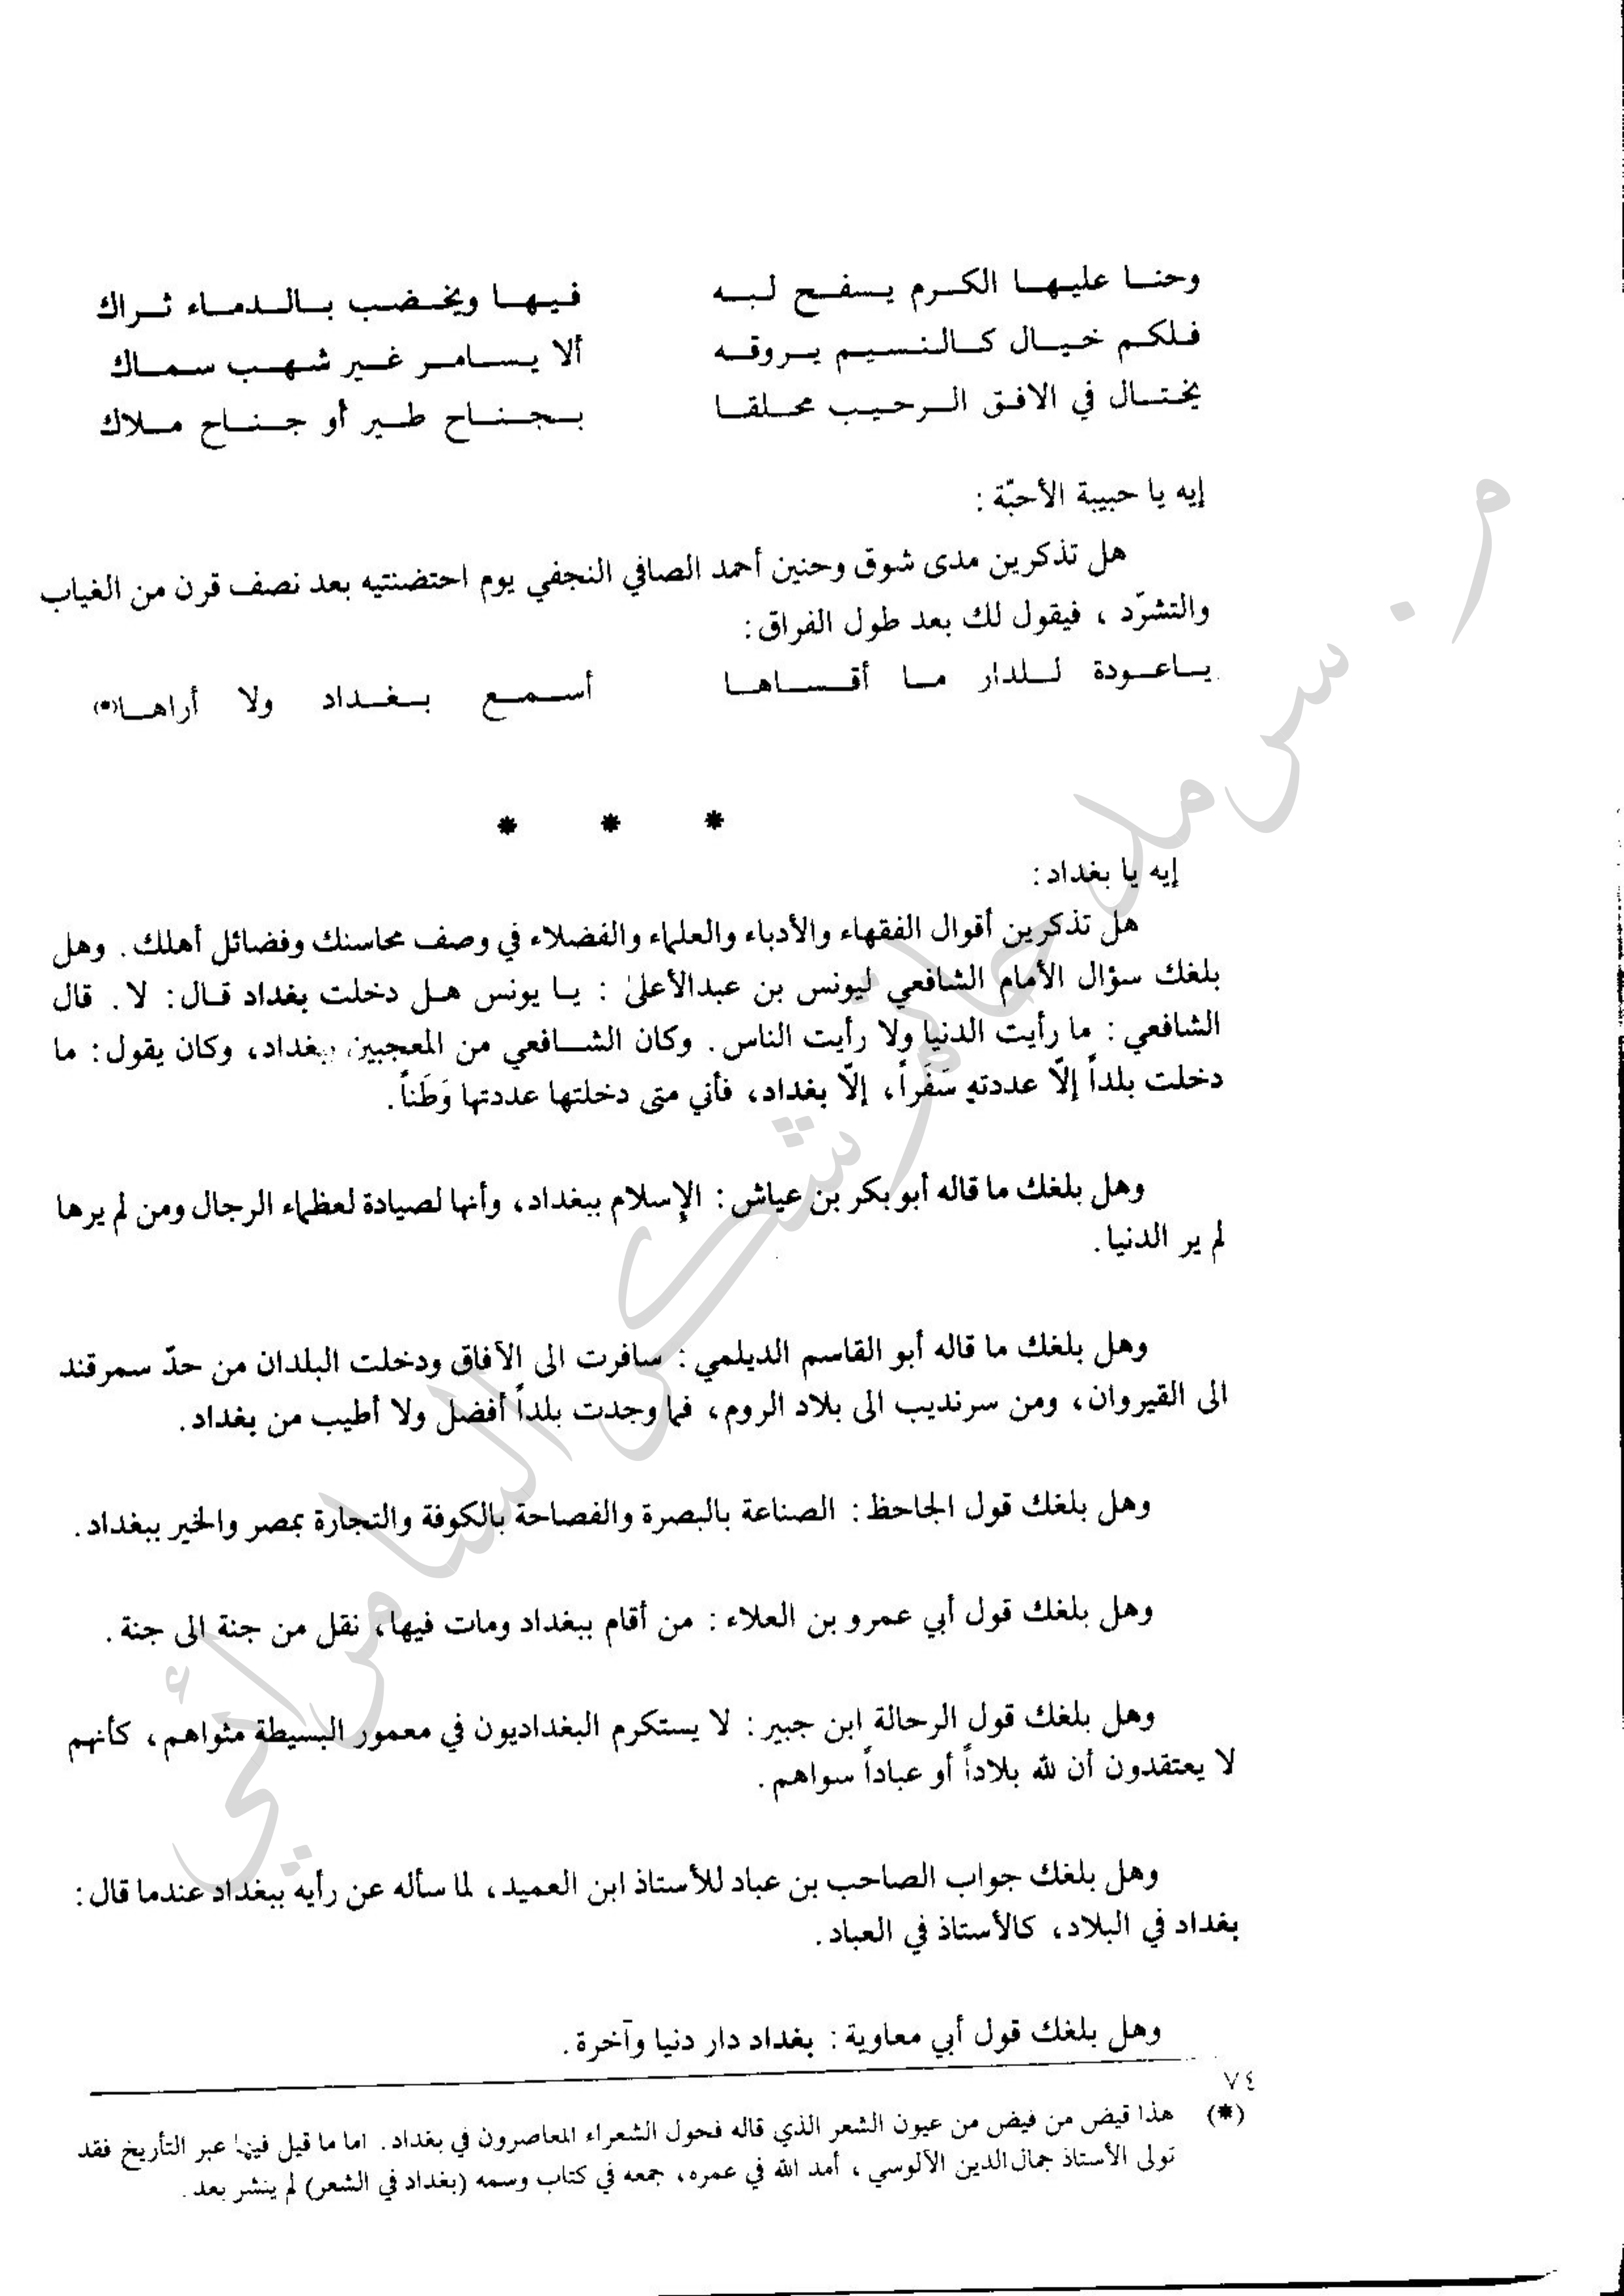 وحنا عليها الكرم يسفح لبه فيها ويخضب بالدماء ثراك
فلكم خيال كالنسيم يروقه ألا يسامر غير شهب سماك
يختال في الافق الرحيب محلقا بجناح طير أو جناح ملاك
إيه يا حبيبة الأحبّة :
هل تذكرين مدى شوق وحنين أحمد الصافي النجفي يوم احتضنتيه بعد نصف قرن من الغياب
والتشرّد ، فيقول لك بعد طول الفراق:
ياعودة للدار ما أقساها أسمع بغداد ولا أراها(*)
* * *
إيه يا بغداد:
هل تذكرين أقوال الفقهاء والأدباء والعلماء والفضلاء في وصف محاسنك وفضائل أهلك. وهل
بلغك سؤال الأمام الشافعي ليونس بن عبدالأعلىٰ : يا يونس هل دخلت بغداد قال: لا. قال
الشافعي: ما رأيت الدنيا ولا رأيت الناس. وكان الشافعي من المعجبين ببغداد، وكان يقول: ما
دخلت بلداً إلّا عددته سَفَراً، إلّا بغداد، فأني متى دخلتها عددتها وَطَناً.
وهل بلغك ما قاله أبو بكر بن عياش: الإسلام ببغداد، وأنها لصيادة لعظماء الرجال ومن لم يرها
لم ير الدنيا.
وهل بلغك ما قاله أبو القاسم الديلمي: سافرت الى الآفاق ودخلت البلدان من حدّ سمرقند
الى القيروان، ومن سرنديب الى بلاد الروم، فما وجدت بلداً أفضل ولا أطيب من بغداد.
وهل بلغك قول الجاحظ: الصناعة بالبصرة والفصاحة بالكوفة والتجارة بمصر والخير ببغداد.
وهل بلغك قول أبي عمرو بن العلاء: من أقام ببغداد ومات فيها، نقل من جنة الى جنة.
وهل بلغك قول الرحالة ابن جبير: لا يستكرم البغداديون في معمور البسيطة مثواهم، كأنهم
لا يعتقدون أن لله بلاداً أو عباداً سواهم.
وهل بلغك جواب الصاحب بن عباد للأستاذ ابن العميد، لما سأله عن رأيه ببغداد عندما قال:
بغداد في البلاد، كالأستاذ في العباد.
وهل بلغك قول أبي معاوية: بغداد دار دنيا وآخرة.
٧٤
(*) هذا قيض من فيض من عيون الشعر الذي قاله فحول الشعراء المعاصرون في بغداد. اما ما قيل فيها عبر التأريخ فقد
تولى الأستاذ جمال الدين الآلوسي، أمد الله في عمره، جمعه في كتاب وسمه (بغداد في الشعر) لم ينشر بعد.
م. سرمد حاتم شكر السامرائي